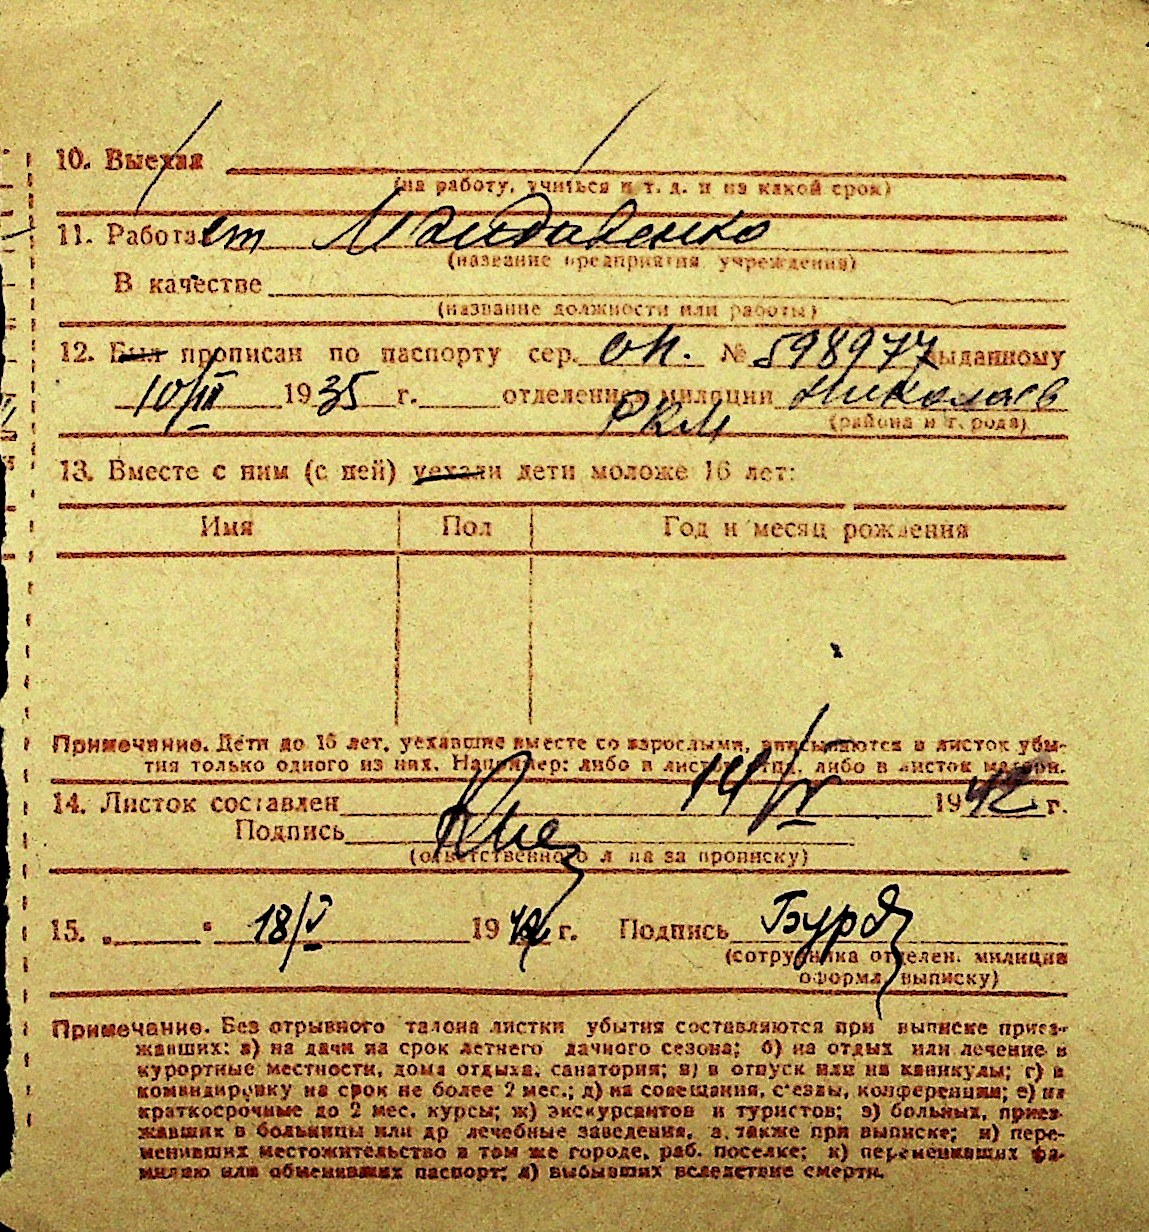 10. Выехал
(на работу, учиться и т. д. и на какой срок)
11. Работает
(название предприятия, учреждения)
В качестве
(название должности или работы)
12. Был прописан по паспорту сер. ОП. № 598977 выданному
10/III 1935 г. отделением милиции Николаев
РКМ (района и города)
13. Вместе с ним (с ней) уехали дети моложе 16 лет:
Имя Пол Год и месяц рождения
Примечание. Дети до 16 лет, уехавшие вместе со взрослыми, вписываются в листок убы-
тия только одного из них. Например: либо в листок отца, либо в листок матери.
14. Листок составлен 14/V 1942 г.
Подпись
(ответственного лица за прописку)
15. „ “ 18/V 1942 г. Подпись
(сотрудника отделен. милиции
оформл. выписку)
Примечание. Без отрывного талона листки убытия составляются при выписке приез-
жавших: а) на дачи на срок летнего дачного сезона; б) на отдых или лечение в
курортные местности, дома отдыха, санатория; в) в отпуск или на каникулы; г) в
командировку на срок не более 2 мес.; д) на совещания, с'езды, конференции; е) на
краткосрочные до 2 мес. курсы; ж) экскурсантов и туристов; з) больных, приез-
жавших в больницы или др лечебные заведения, а также при выписке; и) пере-
менивших местожительство в том же городе, раб. поселке; к) переменивших фа-
милию или обменивших паспорт; л) выбывших вследствие смерти.